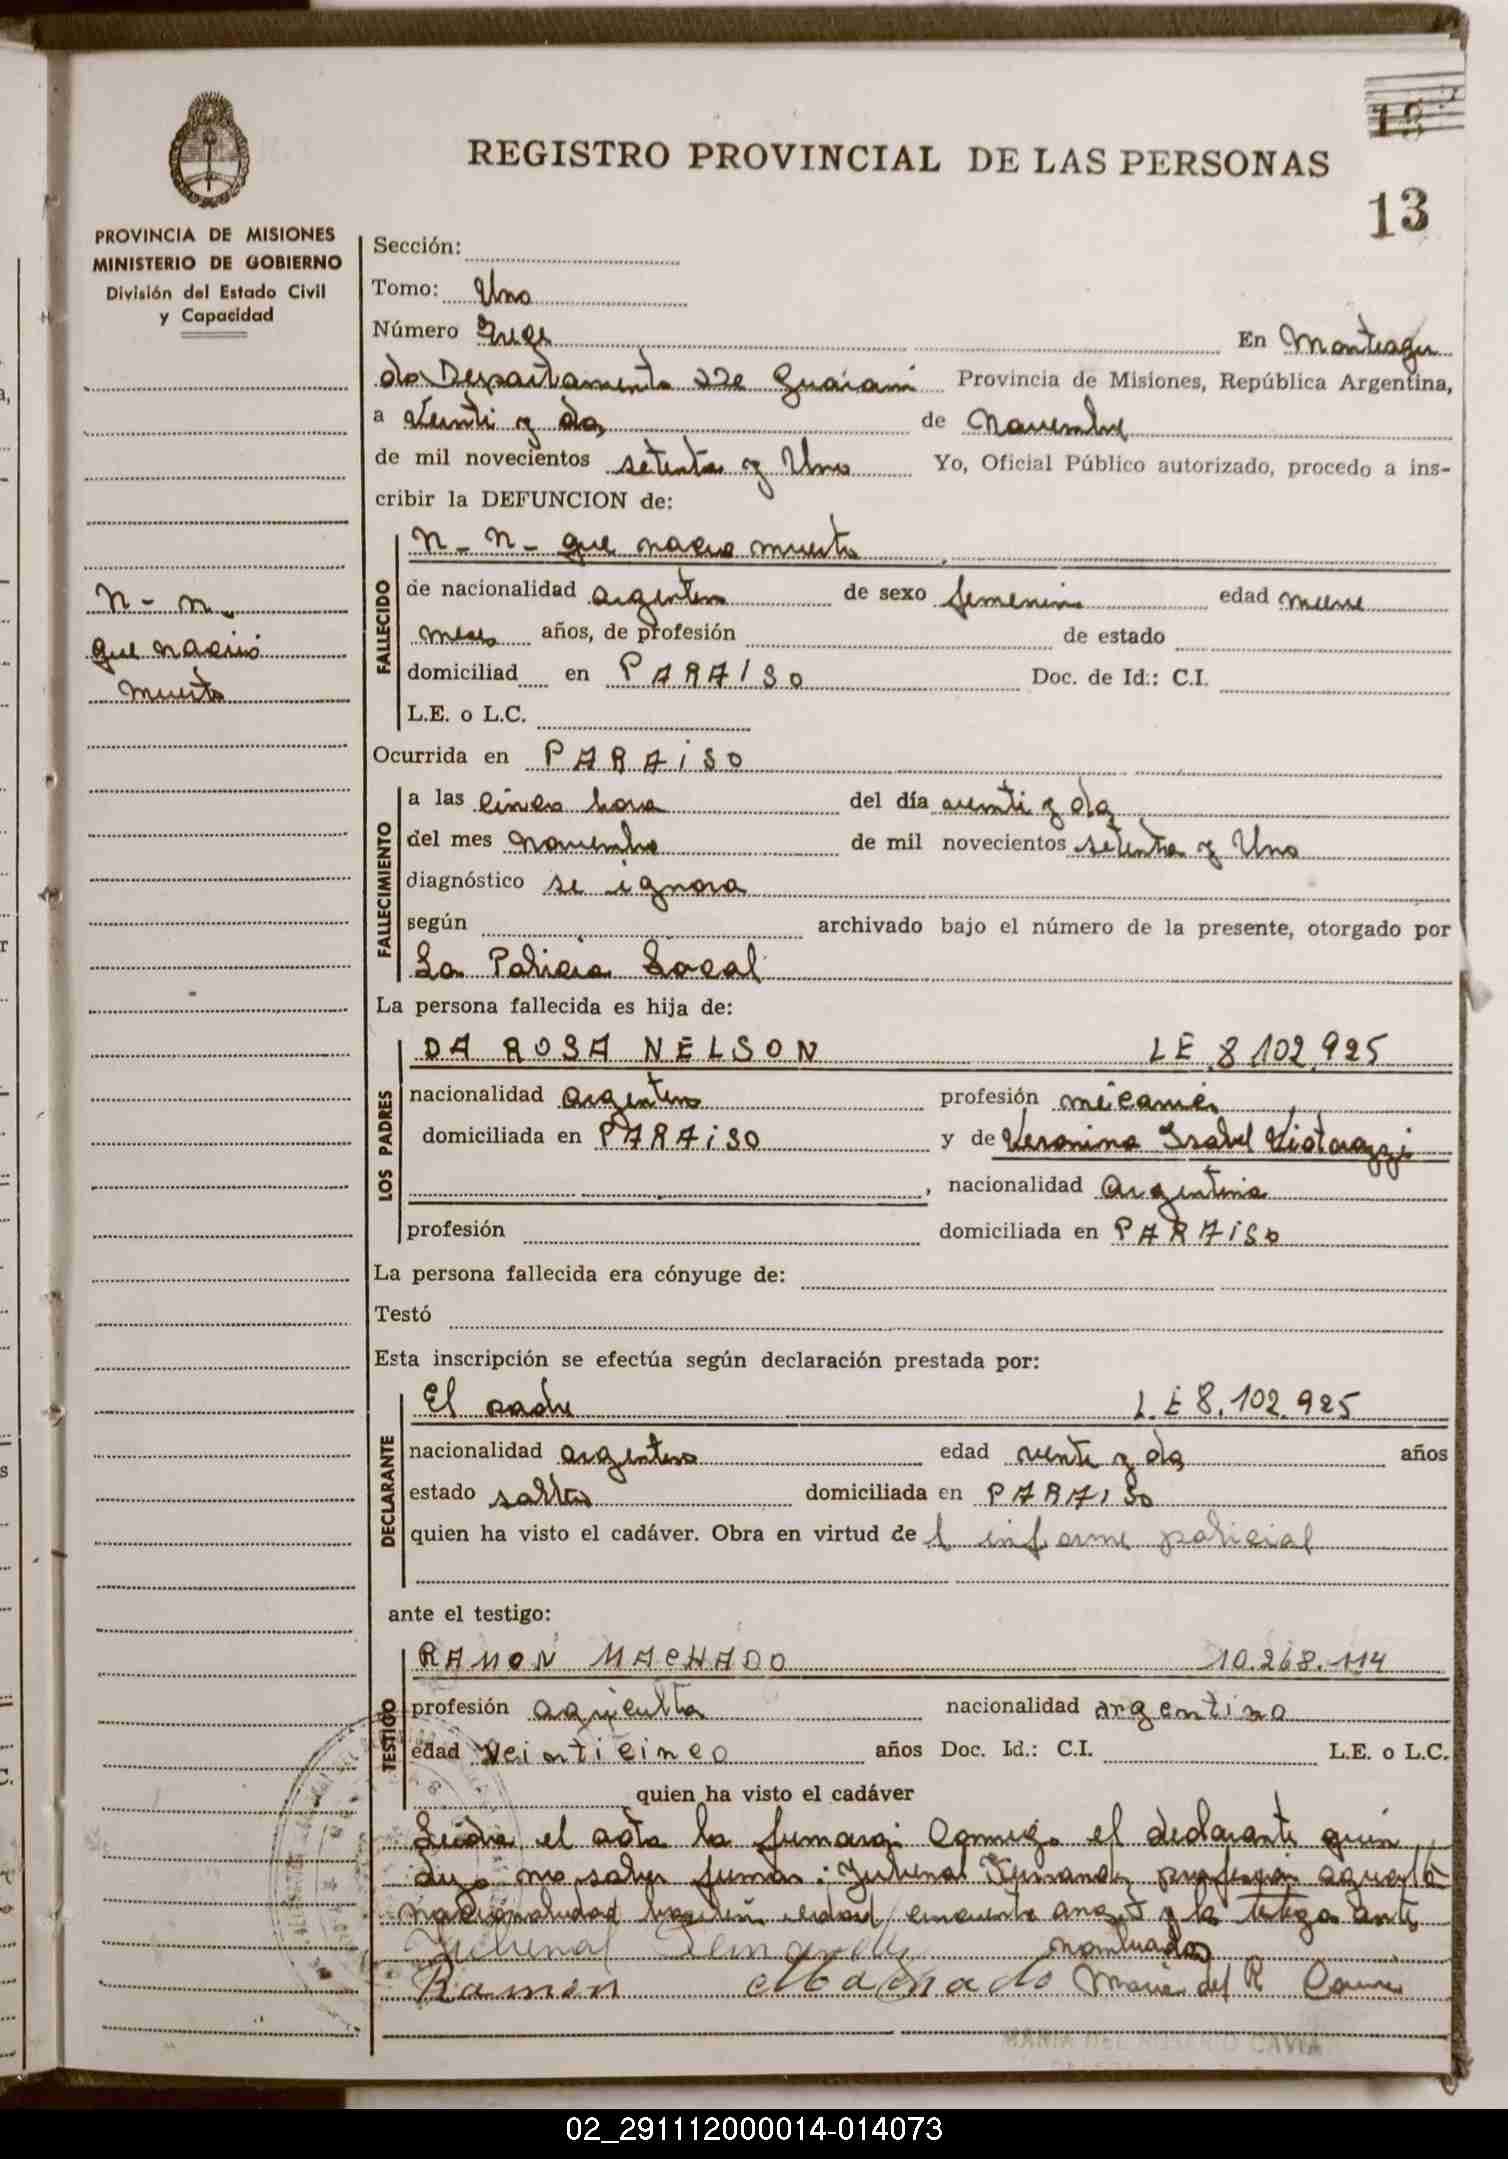 REGISTRO PROVINCIAL DE LAS PERSONAS
13
PROVINCIA DE MISIONES
MINISTERIO DE GOBIERNO
División del Estado Civil
y Capacidad
n - n
que nació
muerta
Sección:
Tomo: Uno
Número Trece En Monteagu
do Departamento de Guarani Provincia de Misiones, República Argentina,
a Veinti y dos de Noviembre
de mil novecientos setenta y Uno Yo, Oficial Público autorizado, procedo a ins-
cribir la DEFUNCION de:
n - n - que nacio muerta
FALLECIDO
de nacionalidad argentina de sexo femenino edad nueve
meses años, de profesión de estado
domiciliad en PARAISO Doc. de Id.: C.I.
L.E. o L.C.
Ocurrida en PARAiSO
FALLECIMIENTO
a las cinco hora del día venti y dos
del mes noviembre de mil novecientos setenta y Uno
diagnóstico se ignora
según archivado bajo el número de la presente, otorgado por
La Policia Local
La persona fallecida es hija de:
LOS PADRES
DA ROSA NELSON LE 8.102.925
nacionalidad argentino profesión mécanico
domiciliada en PARAiSO y de Veronina Isabel
, nacionalidad argentina
profesión domiciliada en PARAiSO
La persona fallecida era cónyuge de:
Testó
Esta inscripción se efectúa según declaración prestada por:
DECLARANTE
El padre L.E 8.102.925
nacionalidad argentino edad venti y dos años
estado soltero domiciliada en PARAISO
quien ha visto el cadáver. Obra en virtud de l informe policial
ante el testigo:
TESTIGO
RAMON MACHADO 10.268.114
profesión agricultor nacionalidad argentino
edad veinticinco años Doc. Id.: C.I. L.E. o L.C.
quien ha visto el cadáver
Leida el acta la firmaron Conmigo el declarante quien
dijo no saber firmar: Juvenal profesion
nacionalidad edad cincuenta y la testigo ante
Juvenal nombrados
Ramon Machado Maria del R
MARIA DEL ROSARIO CAVIA
02_291112000014-014073